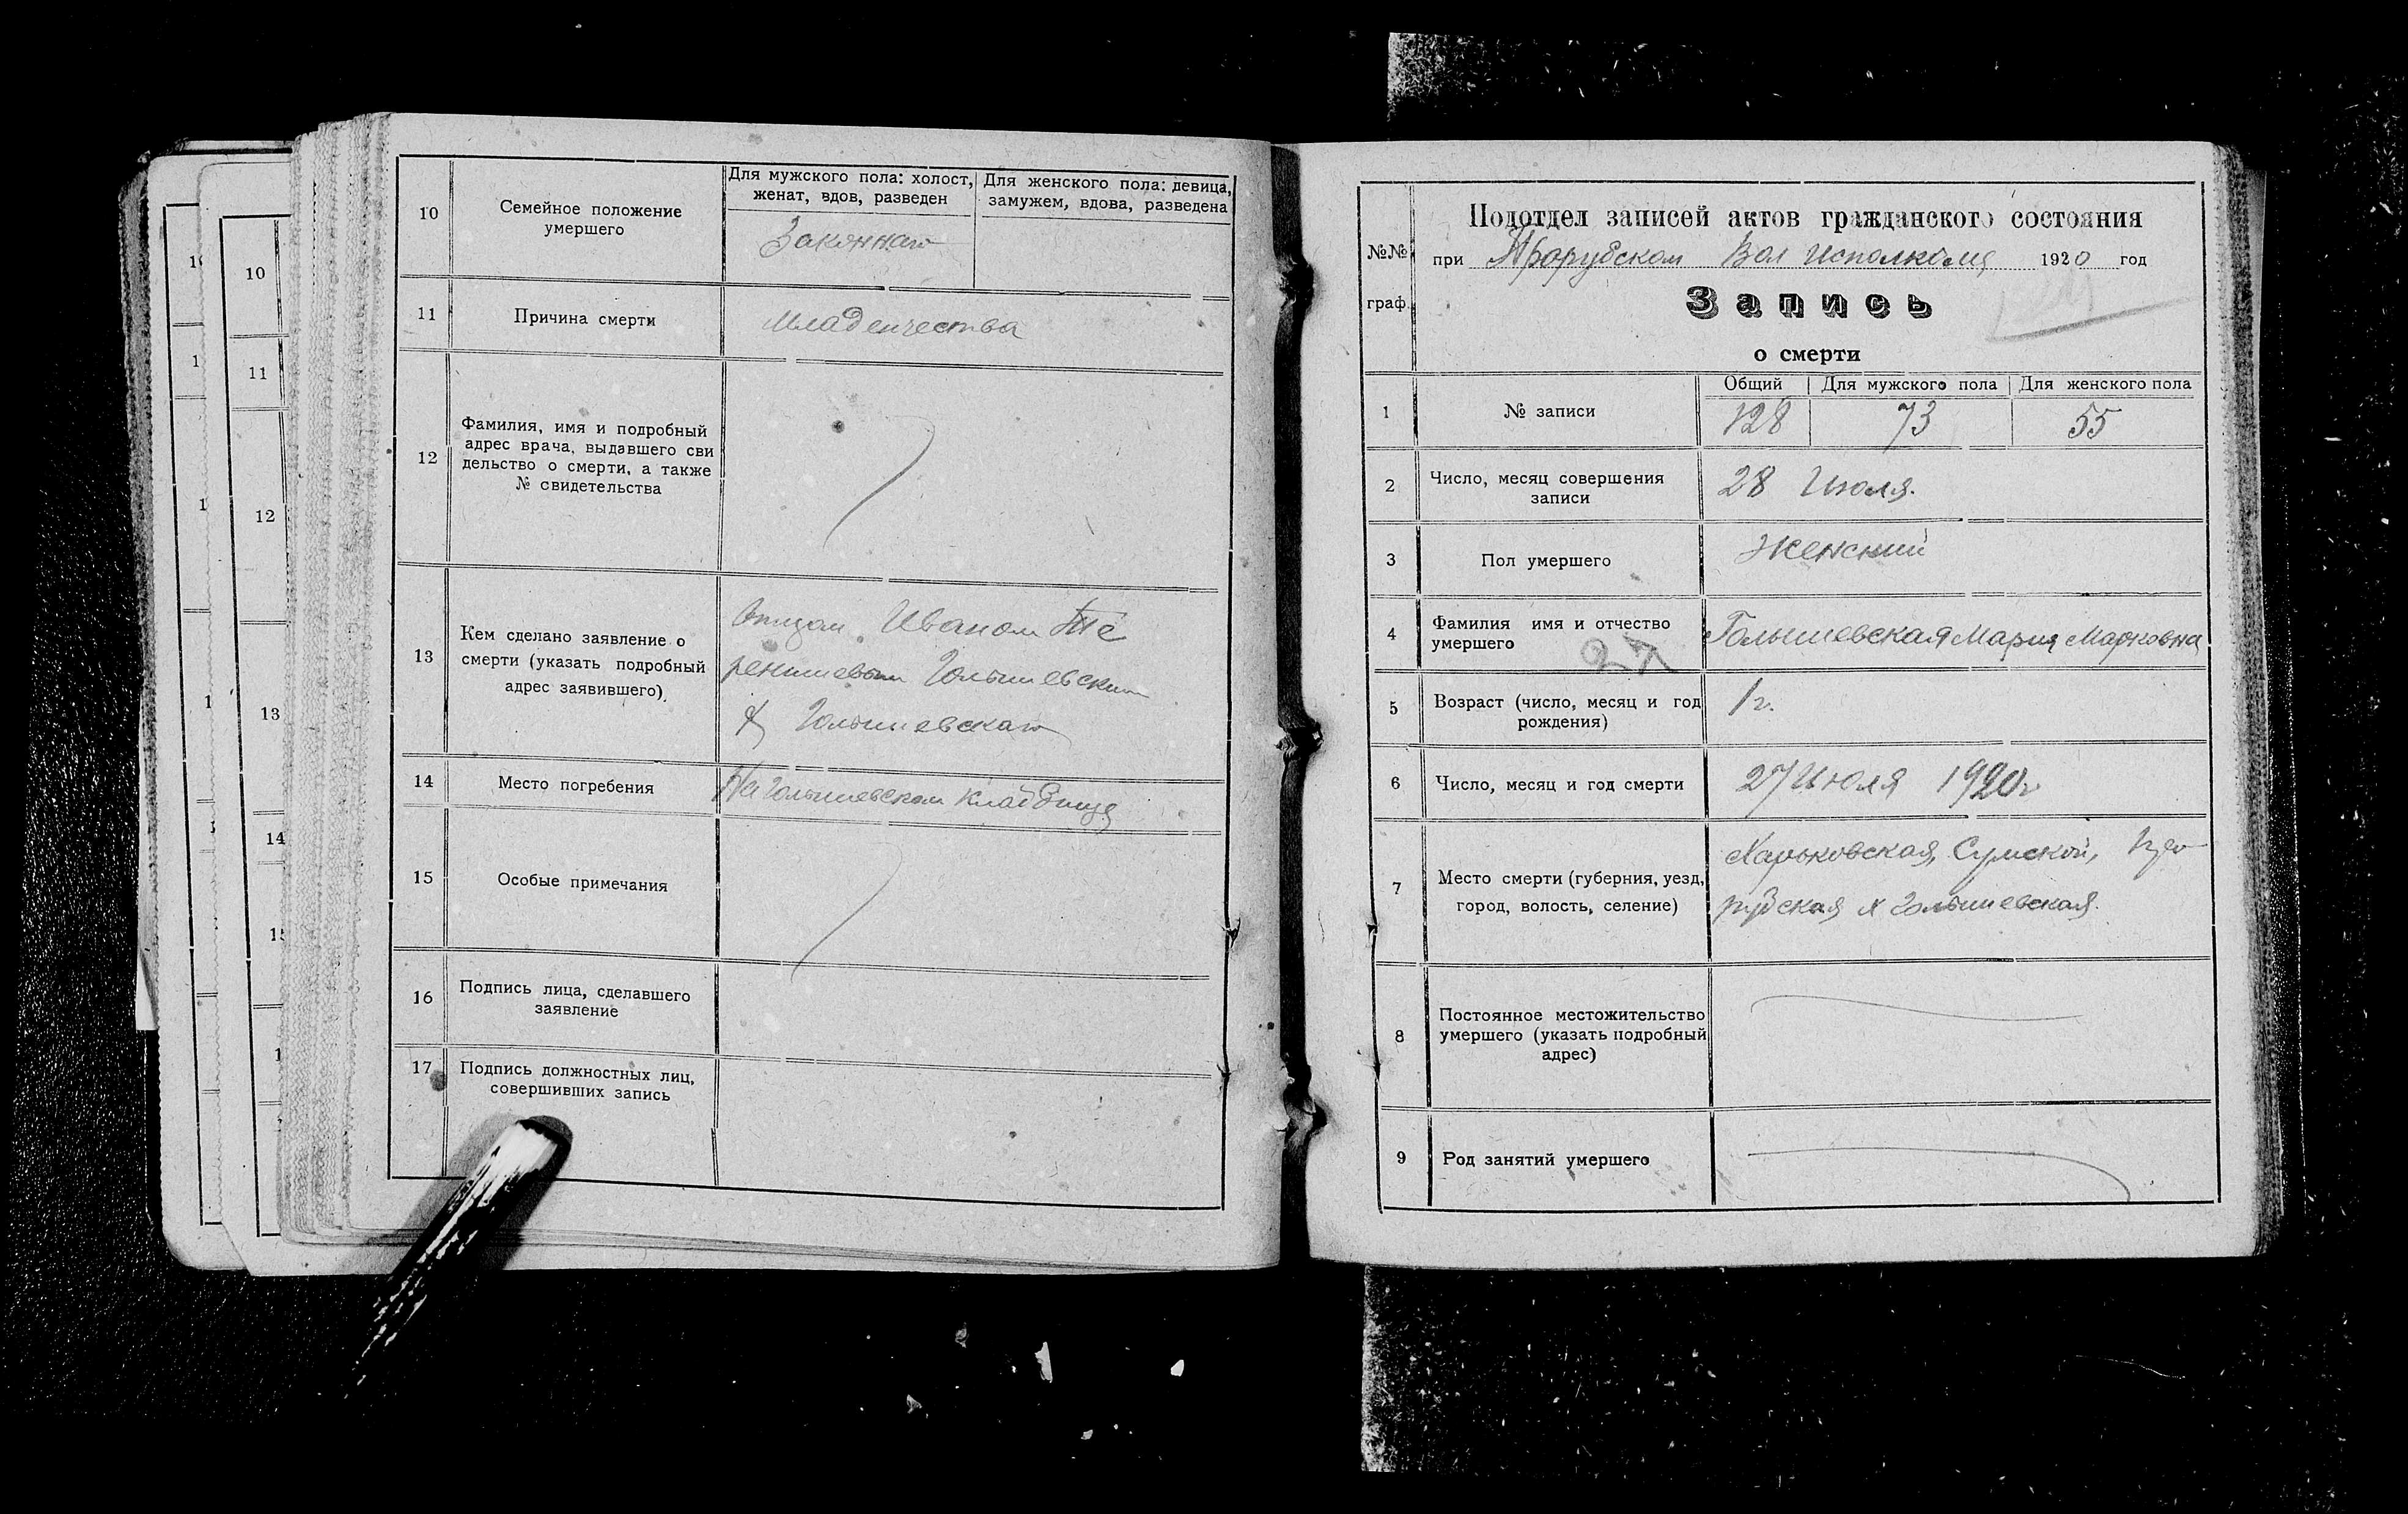 10
Семейное положение
умершего
Для мужского пола: холост,
женат, вдов, разведен
Для женского пола: девица,
замужем, вдова, разведена
Законнаго
11
Причина смерти
Младенчества
12
Фамилия, имя и подробный
адрес врача, выдавшего сви
дельство о смерти, а также
№ свидетельства
13
Кем сделано заявление о
смерти (указать подробный
адрес заявившего)
Отцом Иваном Те
рентиевым Голышевским
х Голышевскаго
14
Место погребения
На Голышевском кладбище
15
Особые примечания
16
Подпись лица, сделавшего
заявление
17
Подпись должностных лиц,
совершивших запись
10
11
12
13
14
№№
граф.
Подотдел записей актов гражданского состояния
при Прорубском Вол Исполкому 1920 год
Запись
о смерти
1
№ записи
Общий
Для мужского пола
Для женского пола
128
73
55
2
Число, месяц совершения
записи
28 Июля.
3
Пол умершего
Женский
4
Фамилия имя и отчество
умершего
27
Голышевская Мария Марковна
5
Возраст (число, месяц и год
рождения)
1 г.
6
Число, месяц и год смерти
27 Июля 1920 г
7
Место смерти (губерния, уезд,
город, волость, селение)
Харьковская, Сумской, Про
рубская х Голышевская.
8
Постоянное местожительство
умершего (указать подробный
адрес)
9
Род занятий умершего